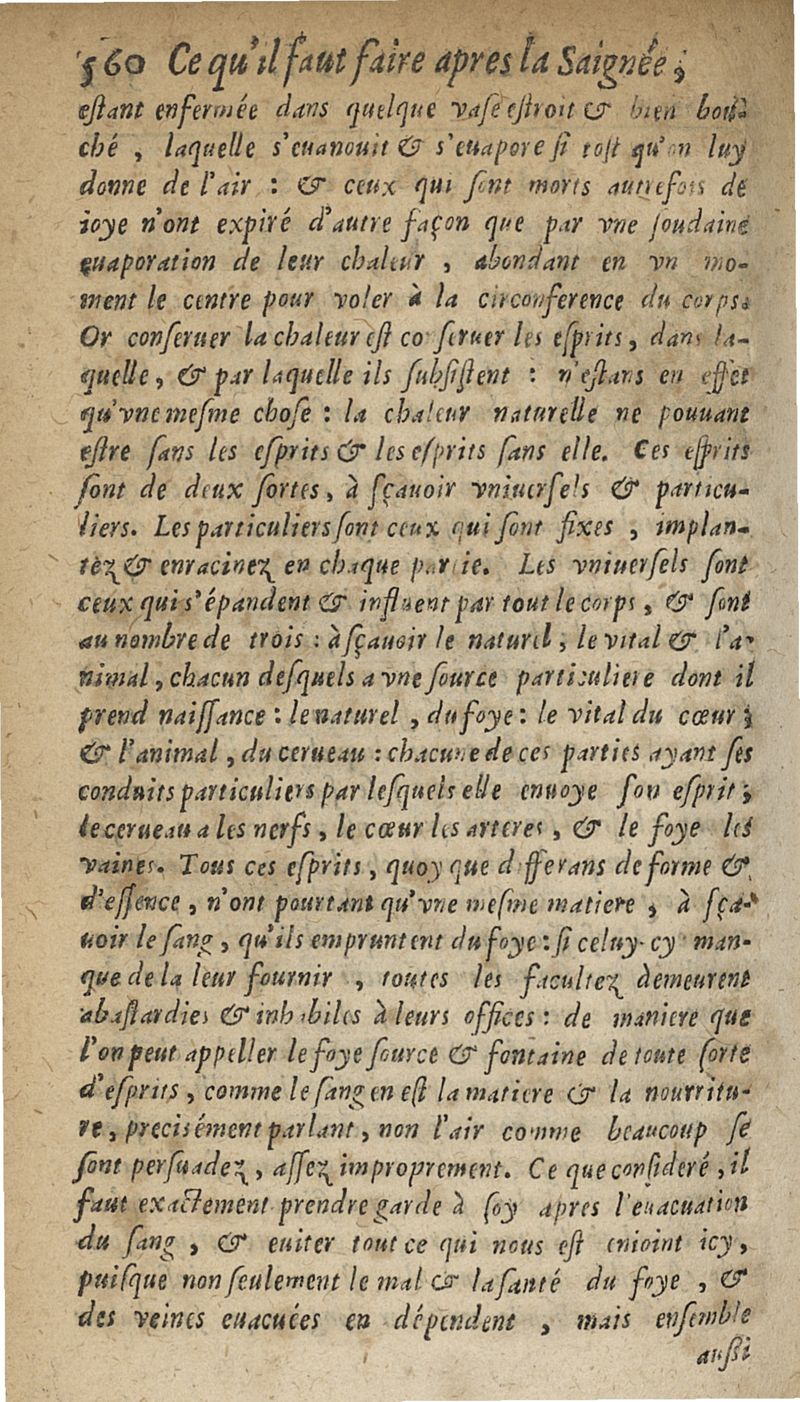 560 Ce qu'il faut faire apres la Saignée,
estant enfermée dans quelque vase estroit & bien bou-
ché, laquelle s'euanouit & s'euapore si tost qu'on luy
donne de l'air : & ceux qui sont morts autrefois de
ioye n'ont expiré d'autre façon que par vne soudaine
euaporation de leur chaleur, abondant en vn mo-
ment le centre pour voler à la circonference du corps.
Or conseruer la chaleur est co seruer les esprits, dans la-
quelle, & par laquelle ils subsistent : n'estans en effet
qu'vne mesme chose : la chaleur naturelle ne pouuant
estre sans les esprits & les esprits sans elle. Ces esprits
sont de deux sortes, à sçauoir vniuersels & particu-
liers. Les particuliers sont ceux qui sont fixes, implan-
tèz & enracinez en chaque partie. Les vniuersels sont
ceux qui s'épandent & influent par tout le corps, & sont
au nombre de trois : à sçauoir le naturel, le vital & l'a-
nimal, chacun desquels a vne source particuliere dont il
prend naissance : le naturel, du foye : le vital du cœur ;
& l'animal, du cerueau : chacune de ces parties ayant ses
conduits particuliers par lesquels elle enuoye son esprit ;
le cerueau a les nerfs, le cœur les arteres, & le foye les
vaines. Tous ces esprits, quoy que differans de forme &
d'essence, n'ont pourtant qu'vne mesme matiere, à sça-
uoir le sang, qu'ils empruntent du foye : si celuy-cy man-
que de la leur fournir, toutes les facultez demeurent
abastardies & inhabiles à leurs offices : de maniere que
l'on peut appeller le foye source & fontaine de toute sorte
d'esprits, comme le sang en est la matiere & la nourritu-
re, precisément parlant, non l'air comme beaucoup se
sont persuadez, assez improprement. Ce que consideré, il
faut exactement prendre garde à soy apres l'euacuation
du sang, & euiter tout ce qui nous est enioint icy,
puisque non seulement le mal & la santé du foye, &
des veines euacuées en dépendent, mais ensemble
aussi